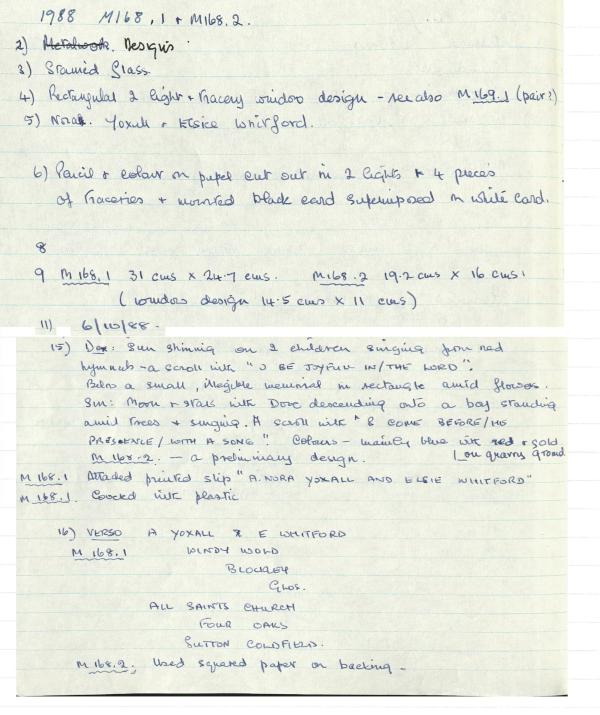 1988 M168,1 + M168.2.
2) Metalwork. Designs
3) Stained Glass.
4) Rectangular 2 light + tracery window design - see also M169.1 (pair?)
5) Nora. Yoxall + Elsie Whitford.
6) Pencil + colour on paper cut out in 2 lights + 4 pieces
of traceries + mounted black card superimposed on white card.
8
9 M168.1 31 cms x 24.7 cms. M168.2 19.2 cms x 16 cms.
(window design 14.5 cms x 11 cms)
11) 6/10/88.
15) Dex: Sun shining on 2 children singing from red
hymnals - a scroll with "O BE JOYFUL IN/THE LORD".
Below a small, illegible memorial in rectangle amid flowers.
Sin: Moon + stars with Dove descending onto a boy standing
amid trees + singing. A scroll with "& COME BEFORE/HIS
PRESENCE/WITH A SONG". Colours - mainly blue with red + gold
M168.2. - a preliminary design. on quarry ground
M168.1 Attached printed slip "A. NORA YOXALL AND ELSIE WHITFORD"
M168.1. Covered with plastic
16) VERSO A YOXALL & E WHITFORD
M168.1 WINDY WOLD
BLOCKLEY
GLOS.
ALL SAINTS CHURCH
FOUR OAKS
SUTTON COLDFIELD.
M168.2. Used squared paper on backing -